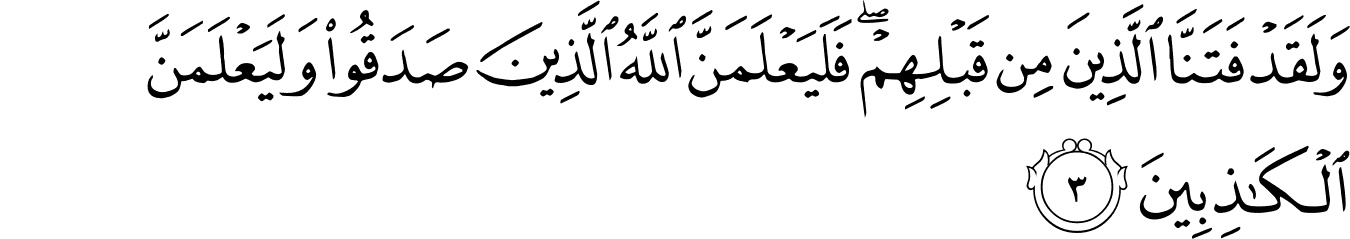 وَلَقَدۡ فَتَنَّا ٱلَّذِينَ مِن قَبۡلِهِمۡۖ فَلَيَعۡلَمَنَّ ٱللَّهُ ٱلَّذِينَ صَدَقُواْ وَلَيَعۡلَمَنَّ
ٱلۡكَٰذِبِينَ ٣